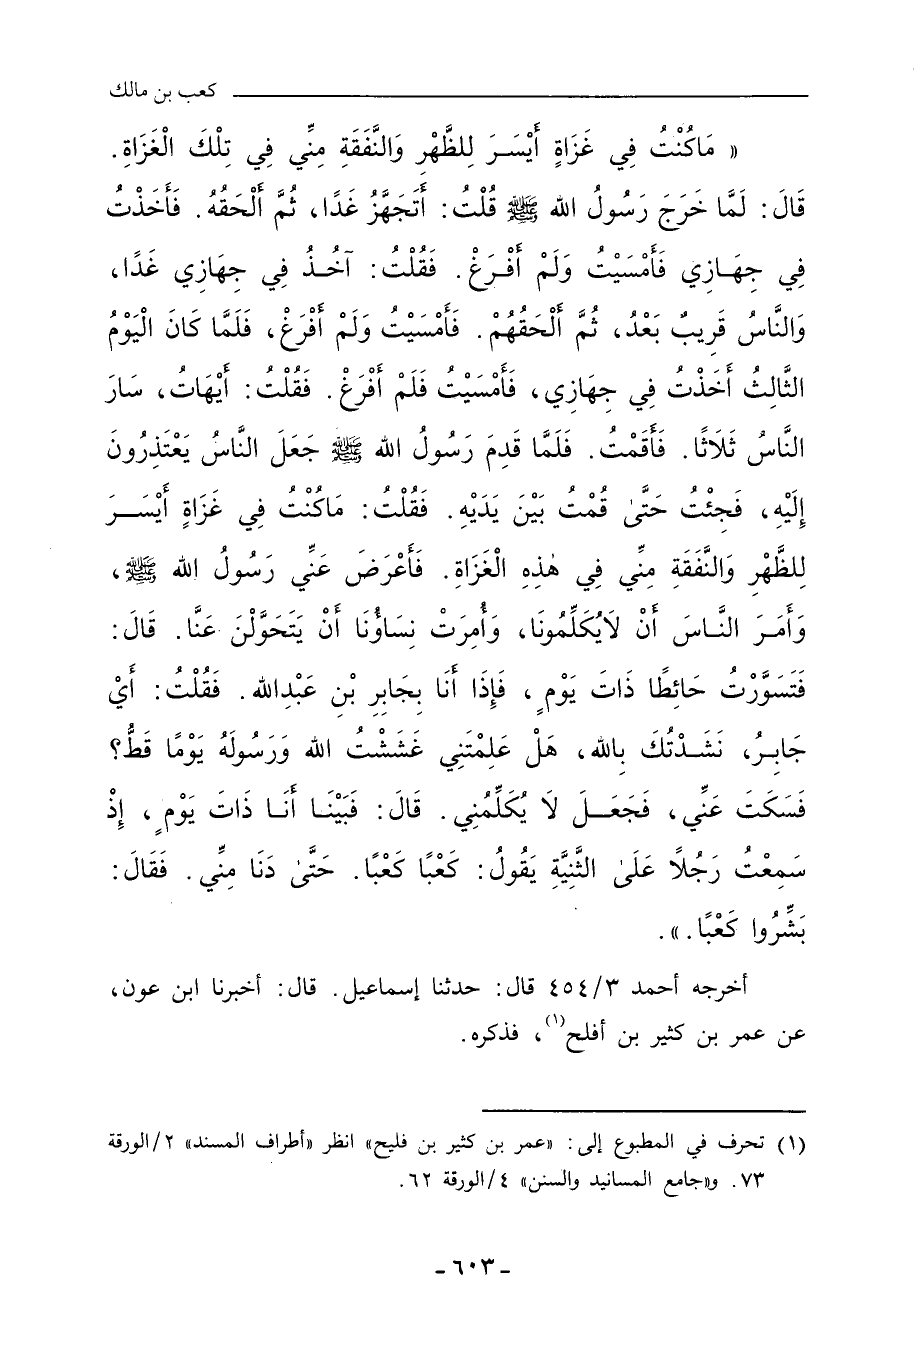 كعب بن مالك
« مَاكُنْتُ فِي غَزَاةٍ أَيْسَرَ لِلظَّهْرِ وَالنَّفَقَةِ مِنِّي فِي تِلْكَ الْغَزَاةِ .
قَالَ : لَمَّا خَرَجَ رَسُولُ الله ﷺ قُلْتُ : أَتَجَهَّزُ غَدًا، ثُمَّ أَلْحَقُهُ . فَأَخَذْتُ
فِي جِهَازِي فَأَمْسَيْتُ وَلَمْ أَفْرَغْ . فَقُلْتُ : آخُذُ فِي جِهَازِي غَدًا،
وَالنَّاسُ قَرِيبٌ بَعْدُ، ثُمَّ أَلْحَقُهُمْ . فَأَمْسَيْتُ وَلَمْ أَفْرَغْ، فَلَمَّا كَانَ الْيَوْمُ
الثَّالِثُ أَخَذْتُ فِي جِهَازِي، فَأَمْسَيْتُ فَلَمْ أَفْرَغْ . فَقُلْتُ : أَيْهَاتُ، سَارَ
النَّاسُ ثَلَاثًا . فَأَقَمْتُ . فَلَمَّا قَدِمَ رَسُولُ الله ﷺ جَعَلَ النَّاسُ يَعْتَذِرُونَ
إِلَيْهِ، فَجِئْتُ حَتَّىٰ قُمْتُ بَيْنَ يَدَيْهِ . فَقُلْتُ : مَاكُنْتُ فِي غَزَاةٍ أَيْسَرَ
لِلظَّهْرِ وَالنَّفَقَةِ مِنِّي فِي هٰذِهِ الْغَزَاةِ . فَأَعْرَضَ عَنِّي رَسُولُ الله ﷺ،
وَأَمَرَ النَّاسَ أَنْ لَايُكَلِّمُونَا، وَأُمِرَتْ نِسَاؤُنَا أَنْ يَتَحَوَّلْنَ عَنَّا . قَالَ :
فَتَسَوَّرْتُ حَائِطًا ذَاتَ يَوْمٍ، فَإِذَا أَنَا بِجَابِرِ بْنِ عَبْدِالله . فَقُلْتُ : أَيْ
جَابِرُ، نَشَدْتُكَ بِالله، هَلْ عَلِمْتَنِي غَشَشْتُ الله وَرَسُولَهُ يَوْمًا قَطُّ؟
فَسَكَتَ عَنِّي، فَجَعَلَ لَا يُكَلِّمُنِي . قَالَ : فَبَيْنَا أَنَا ذَاتَ يَوْمٍ، إِذْ
سَمِعْتُ رَجُلًا عَلَىٰ الثَّنِيَّةِ يَقُولُ : كَعْبًا كَعْبًا . حَتَّىٰ دَنَا مِنِّي . فَقَالَ :
بَشِّرُوا كَعْبًا . » .
أخرجه أحمد ٤٥٤/٣ قال : حدثنا إسماعيل . قال : أخبرنا ابن عون،
عن عمر بن كثير بن أفلح(١)، فذكره .
(١) تحرف في المطبوع إلى : «عمر بن كثير بن فليح» انظر «أطراف المسند» ٢/الورقة
٧٣ . و«جامع المسانيد والسنن» ٤/الورقة ٦٢ .
- ٦٠٣ -